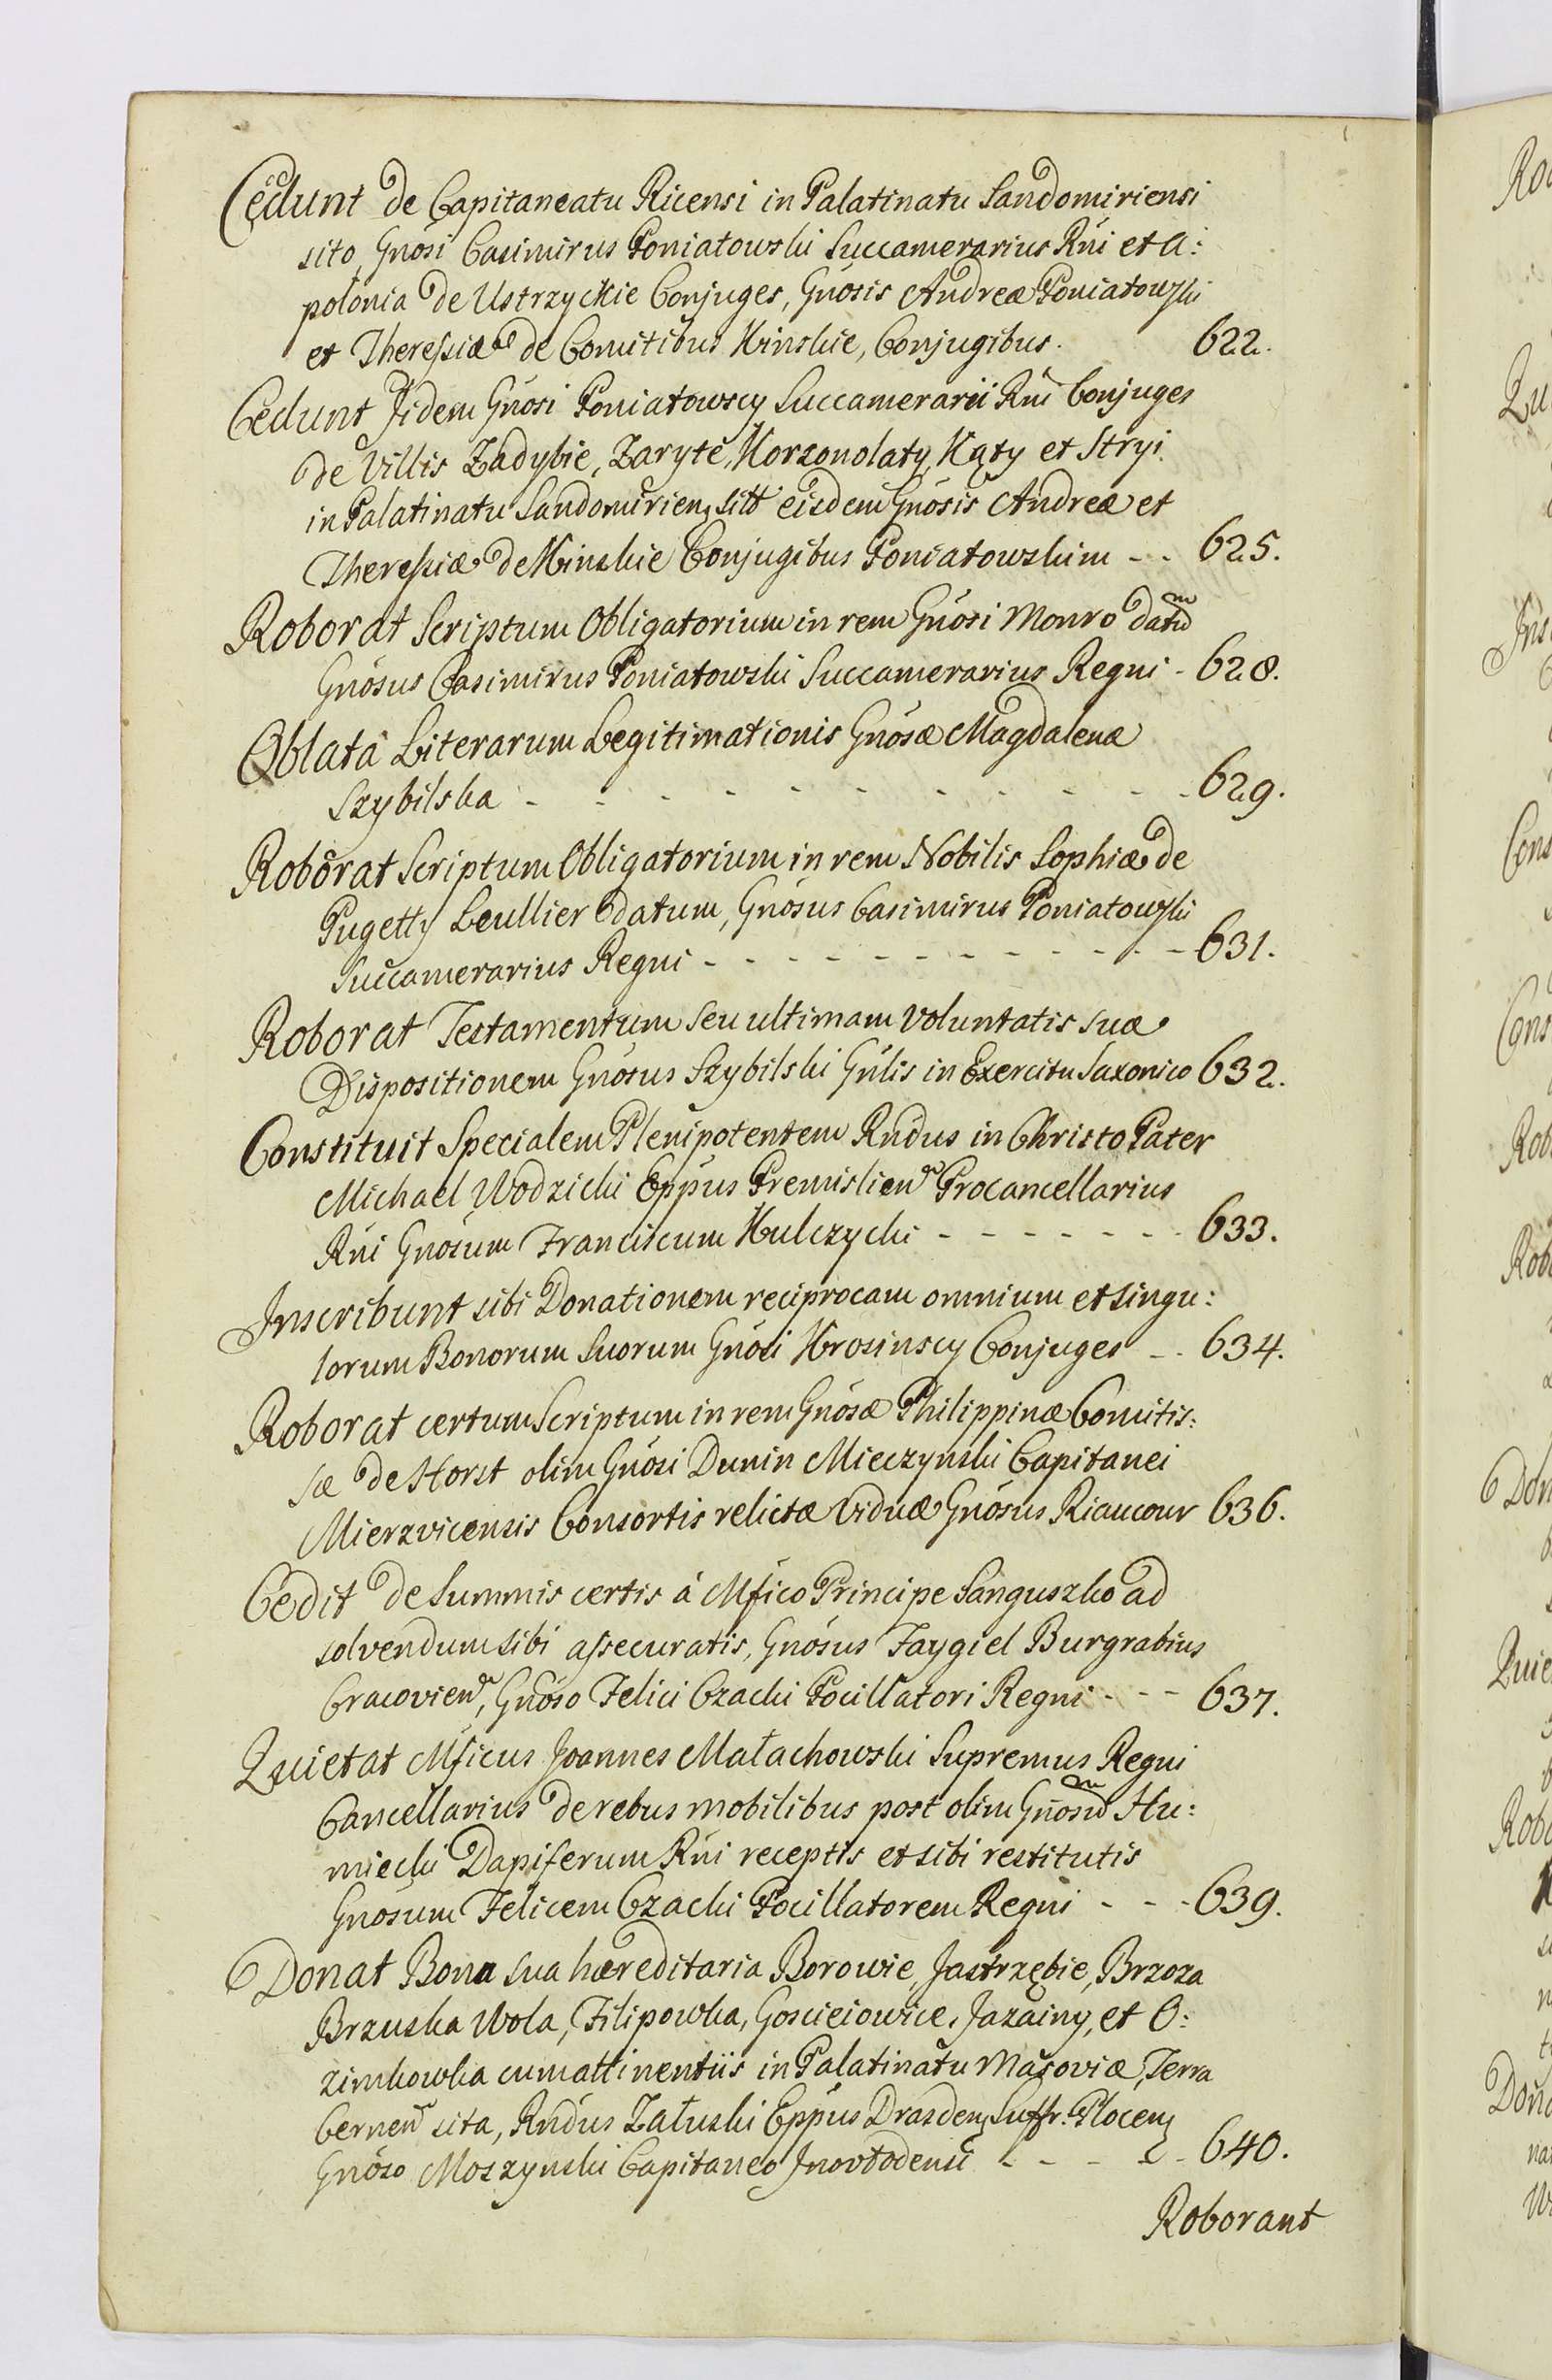 Cedunt de Capitaneatu Ricensi in Palatinatu Sandomiriensi
sito, Gnosi Casimirus Poniatowski Succamerarius Rni et A:
polonia de Ustrzyckie Conjuges, Gnosis Andreæ Poniatowski
et Theresiæ de Comitibus Kinskie, Conjugibus. 622.
Cedunt Jidem Gnosi Poniatowscy Succamerarii Rni Conjuges
de Villis Zadybie, Zaryte, Korzonolaty, Kąty et Stryi
in Palatinatu Sandomirien sitt eisdem Gnosis Andreæ et
Theresiæ de Kinskie Conjugibus Poniatowskim - - 625.
Roborat Scriptum Obligatorium in rem Gnosi Monro datum
Gnosus Casimirus Poniatowski Succamerarius Regni - 628.
Oblata Literarum Legitimationis Gnosæ Magdalenæ
Szybilska - - - - - - - - - - - 629.
Roborat Scriptum Obligatorium in rem Nobilis Sophiæ de
Pugetty Leullier datum, Gnosus Casimirus Poniatowski
Succamerarius Regni - - - - - - - - - - - 631.
Roborat Testamentum seu ultimam Voluntatis suæ
Dispositionem Gnosus Szybilski Gnlis in Exercitu Saxonico 632.
Constituit Specialem Plenipotentem Rndus in Christo Pater
Michael Wodzicki Eppus Premislien Procancellarius
Rni Gnosum Franciscum Kulczycki - - - - - - 633.
Inscribunt sibi Donationem reciprocam omnium et singu:
lorum Bonorum Suorum Gnosi Krosinscy Conjuges - - 634.
Roborat certum Scriptum in rem Gnosæ Philippinæ Comitis:
sæ de Horst olim Gnosi Dunin Mieczynski Capitanei
Mierzvicensis Consortis relictæ Viduæ Gnosus Riaucour 636.
Cedit de Summis certis á Mfico Principe Sanguszko ad
solvendum sibi assecuratis, Gnosus Faygiel Burgrabius
Cracovien, Gnoso Felici Czacki Pocillatori Regni - - - 637.
Quietat Mficus Joannes Małachowski Supremus Regni
Cancellarius de rebus mobilibus post olim Gnosum Hu:
miecki Dapiferum Rni receptis et sibi restitutis
Gnosum Felicem Czacki Pocillatorem Regni - - - 639.
Donat Bona sua hæreditaria Borowie, Jastrzębie, Brzoza
Brzuska Wola, Filipowka, Goscieiowice, Jazainy, et O:
zimkowka cum attinentiis in Palatinatu Masoviæ, Terra
Cernen sita, Rndus Załuski Eppus Drasden Suffr. Plocen
Gnoso Moszynski Capitaneo Inovlodensi - - - - - 640.
Roborant